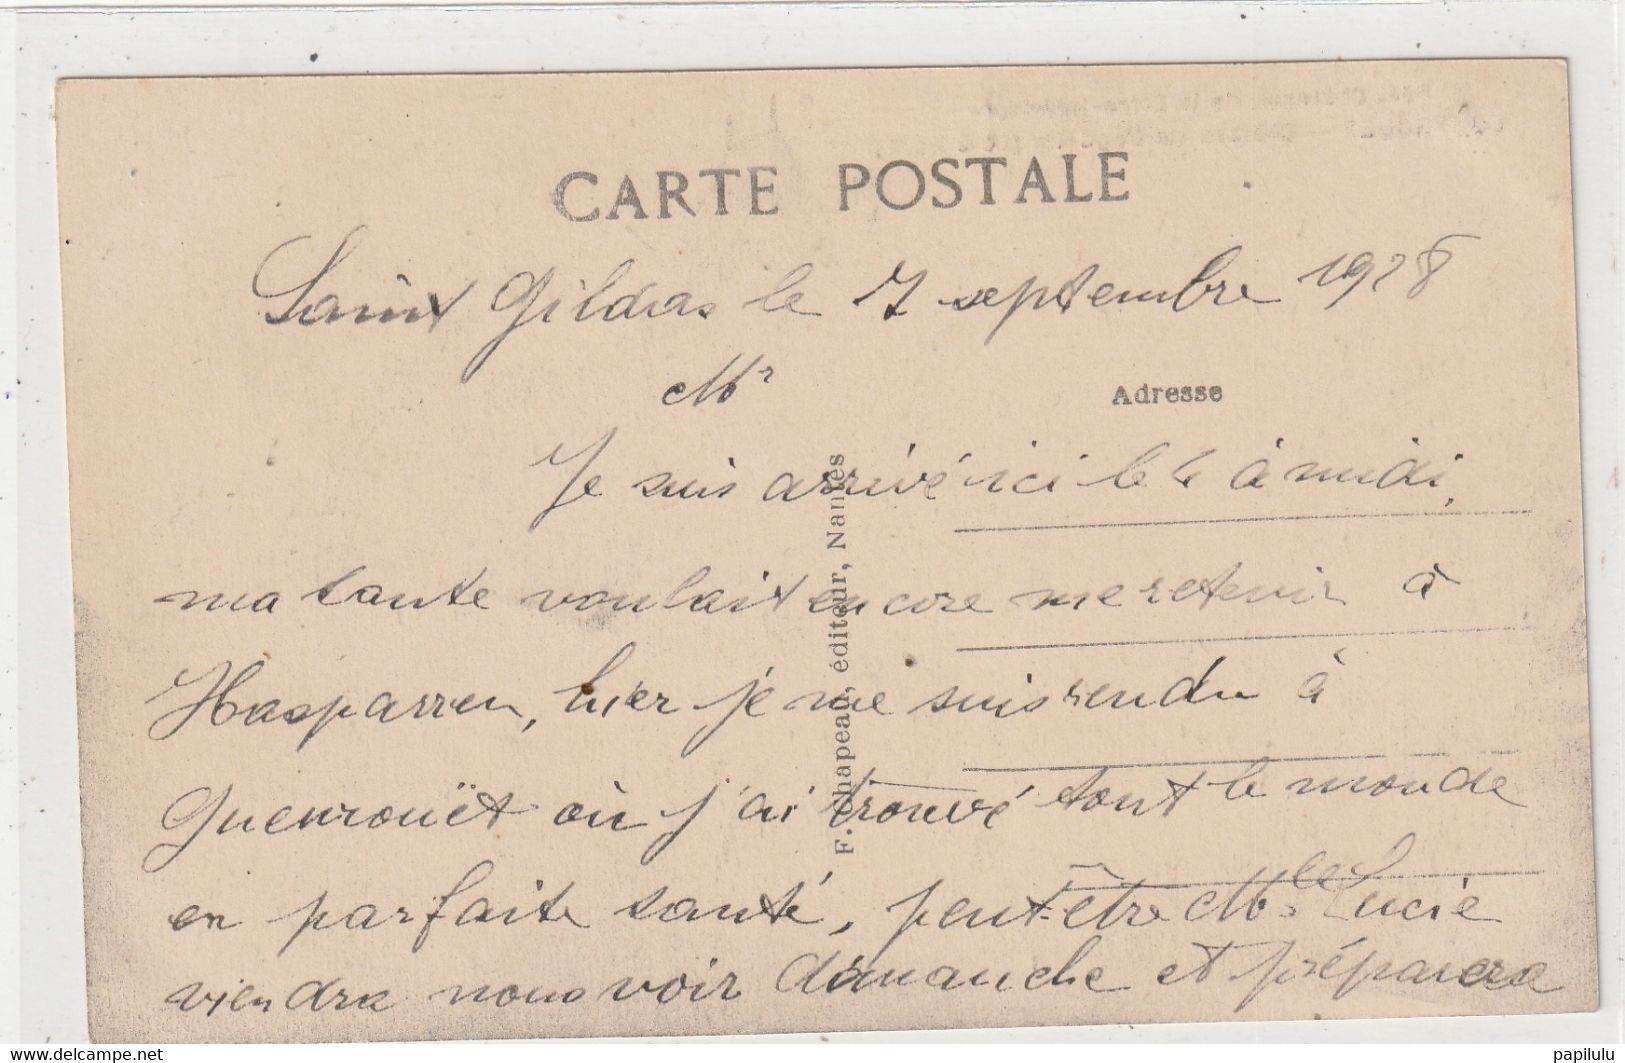 CARTE POSTALE
Saint Gildas le 7 septembre 1928
Mr
Adresse
Je suis arrivé ici le 4 à midi,
ma tante voulait encore me retenir à
Hasparren, hier je me suis rendu à
Guenrouët où j'ai trouvé tout le monde
en parfaite santé, peut-être Mlle Lucie
viendra nous voir dimanche et préparera
F. Chapeau, éditeur, Nantes
www.delcampe.net
papilulu